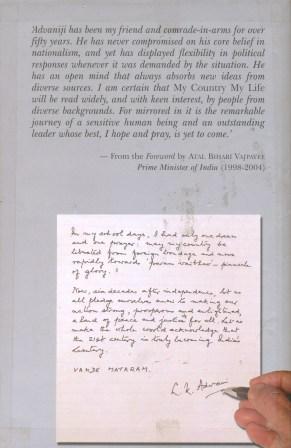 'Advaniji has been my friend and comrade-in-arms for over
fifty years. He has never compromised on his core belief in
nationalism, and yet has displayed flexibility in political
responses whenever it was demanded by the situation. He has
an open mind that always absorbs new ideas from
diverse sources. I am certain that My Country My Life
will be read widely, and with keen interest, by people from
diverse backgrounds. For mirrored in it is the remarkable
journey of a sensitive human being and an outstanding
leader whose best, I hope and pray, is yet to come.'
— From the Foreword by ATAL BIHARI VAJPAYEE
Prime Minister of India (1998-2004)
In my school days, I had only one dream
and one prayer: may my country be
liberated from foreign bondage and move
rapidly towards 'param vaibhav - pinnacle
of glory.'
Now, six decades after independence, let us
all pledge ourselves anew to making our
nation strong, prosperous and enlightened,
a land of peace and justice for all. Let us
make the whole world acknowledge that
the 21st century is truly becoming India's
Century.
VANDE MATARAM.
L. K. Advani